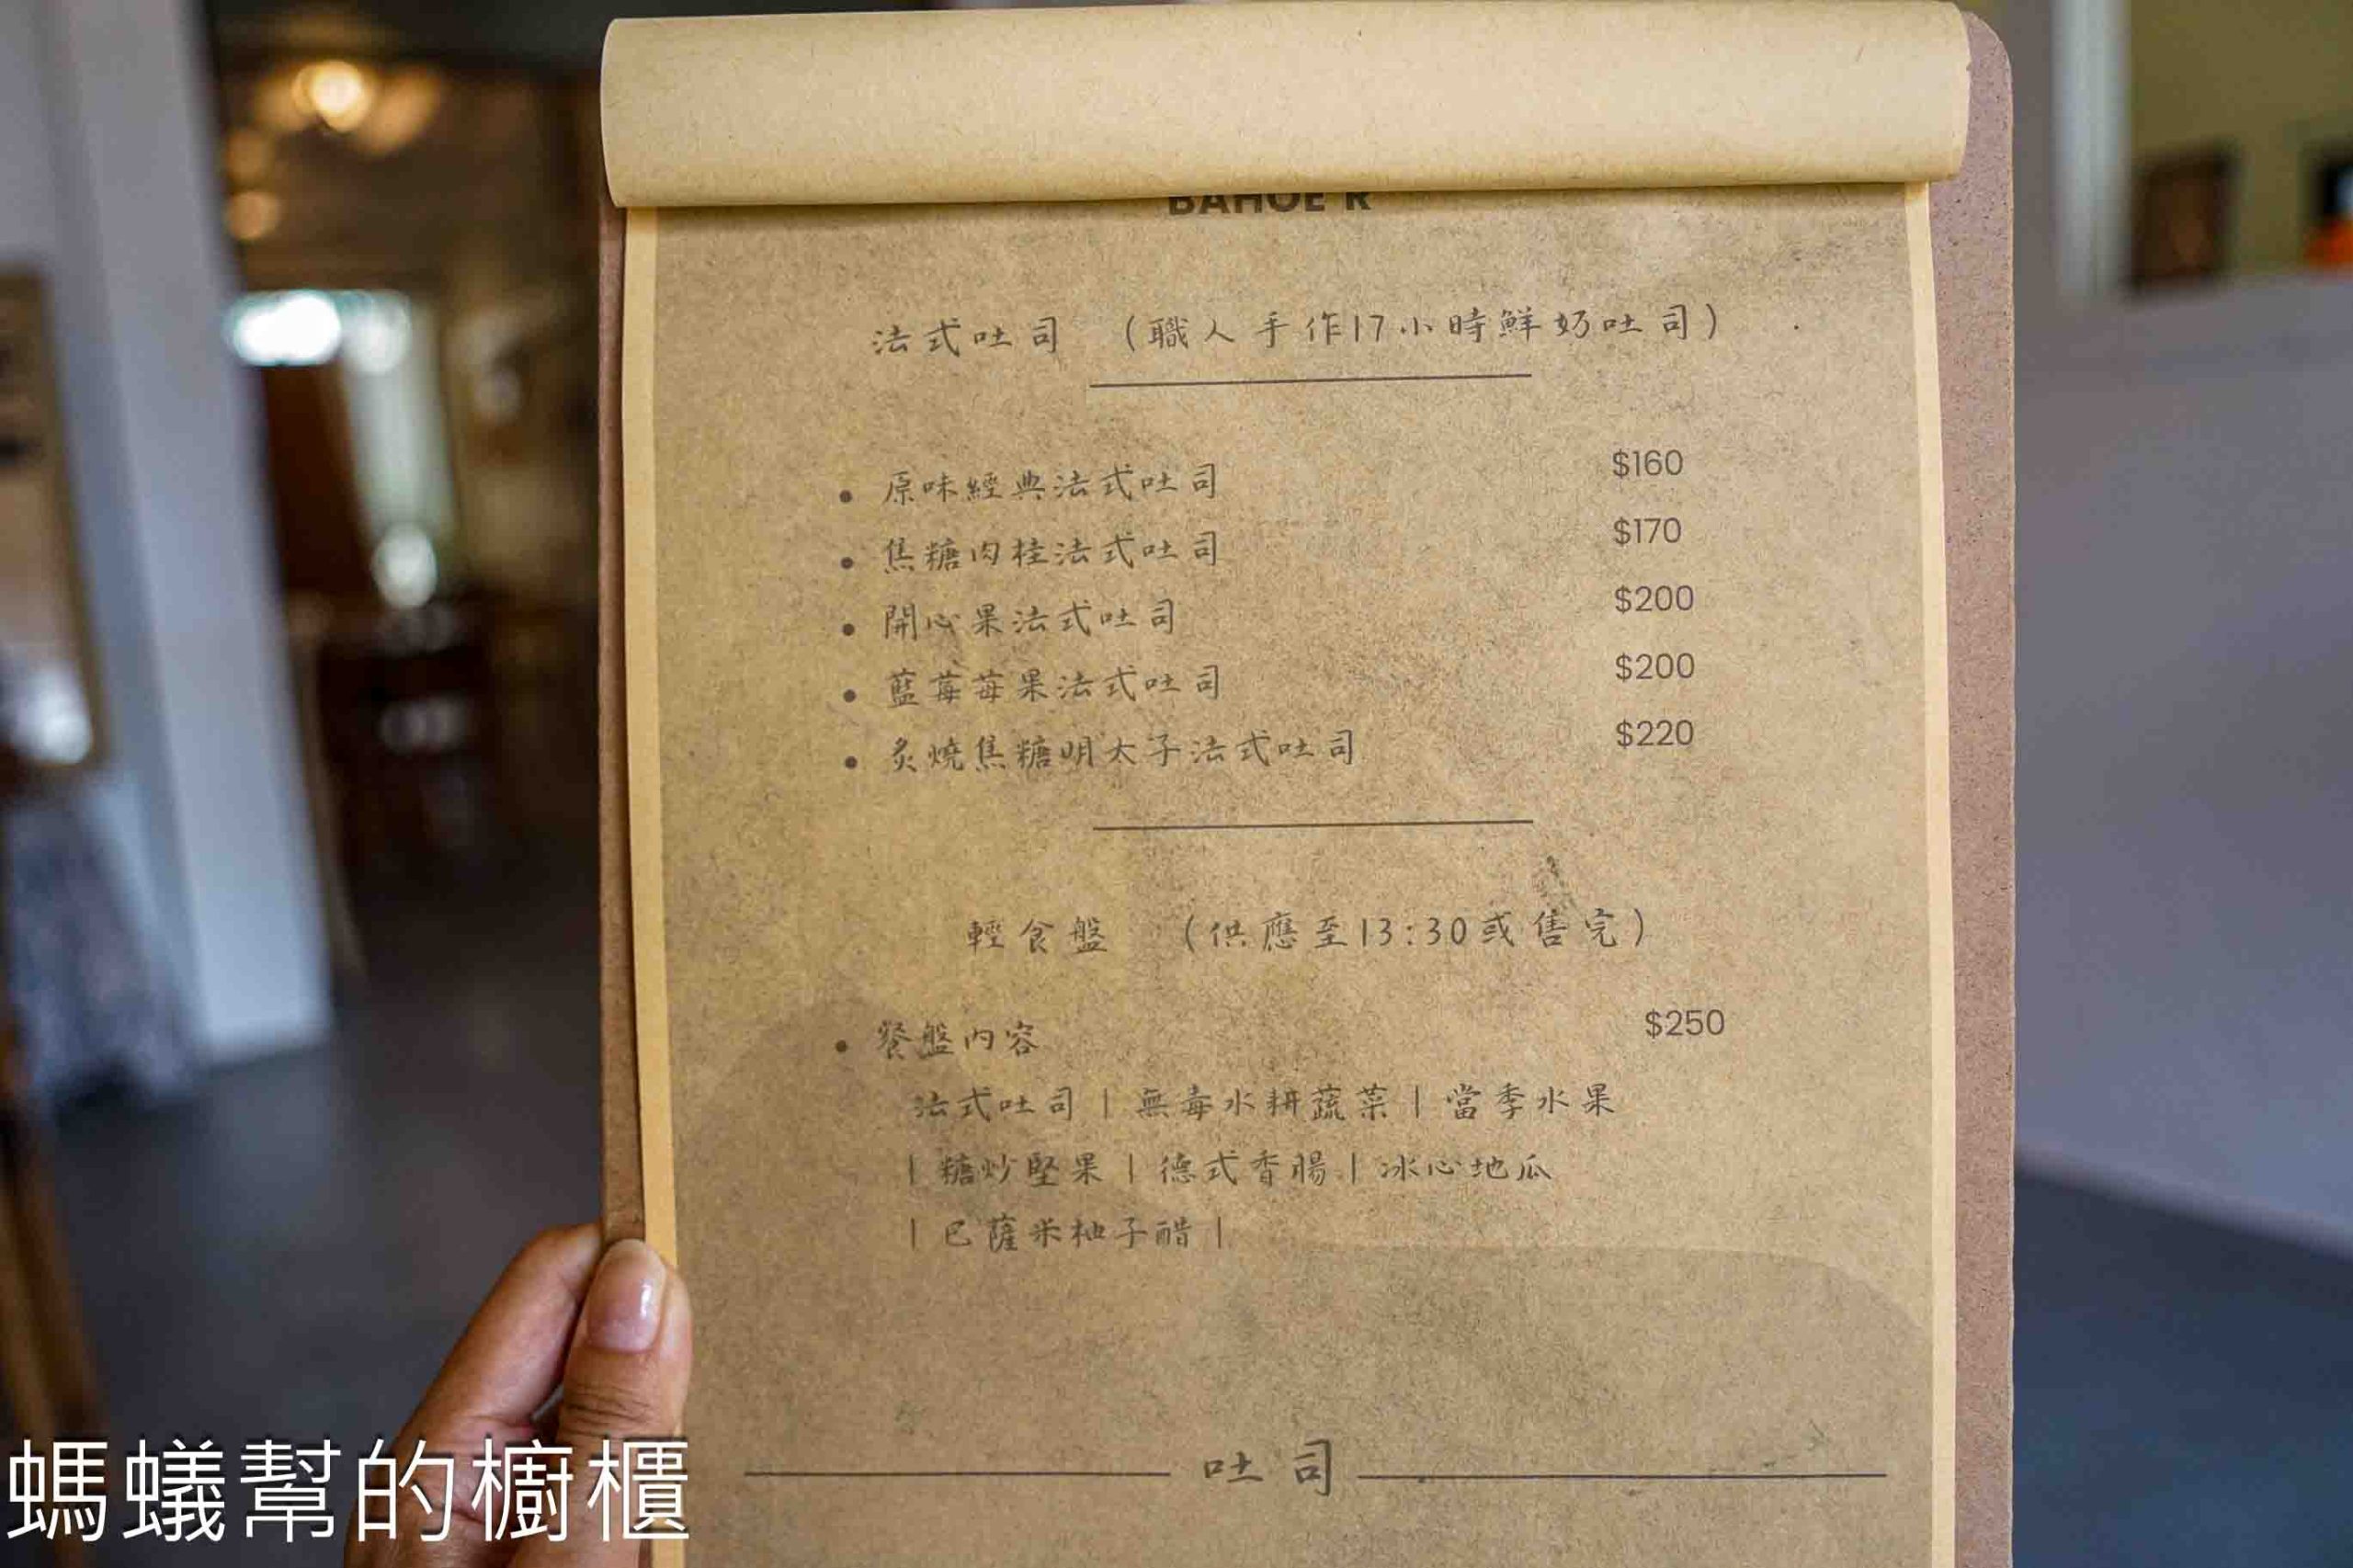 BAHOE R
法式吐司 (職人手作17小時鮮奶吐司)
• 原味經典法式吐司 $160
• 焦糖肉桂法式吐司 $170
• 開心果法式吐司 $200
• 藍莓莓果法式吐司 $200
• 炙燒焦糖明太子法式吐司 $220
輕食盤 (供應至13:30或售完)
• 餐盤內容 $250
法式吐司|無毒水耕蔬菜|當季水果
|糖炒堅果|德式香腸|冰心地瓜
|巴薩米柚子醋|
吐司
螞蟻幫的櫥櫃